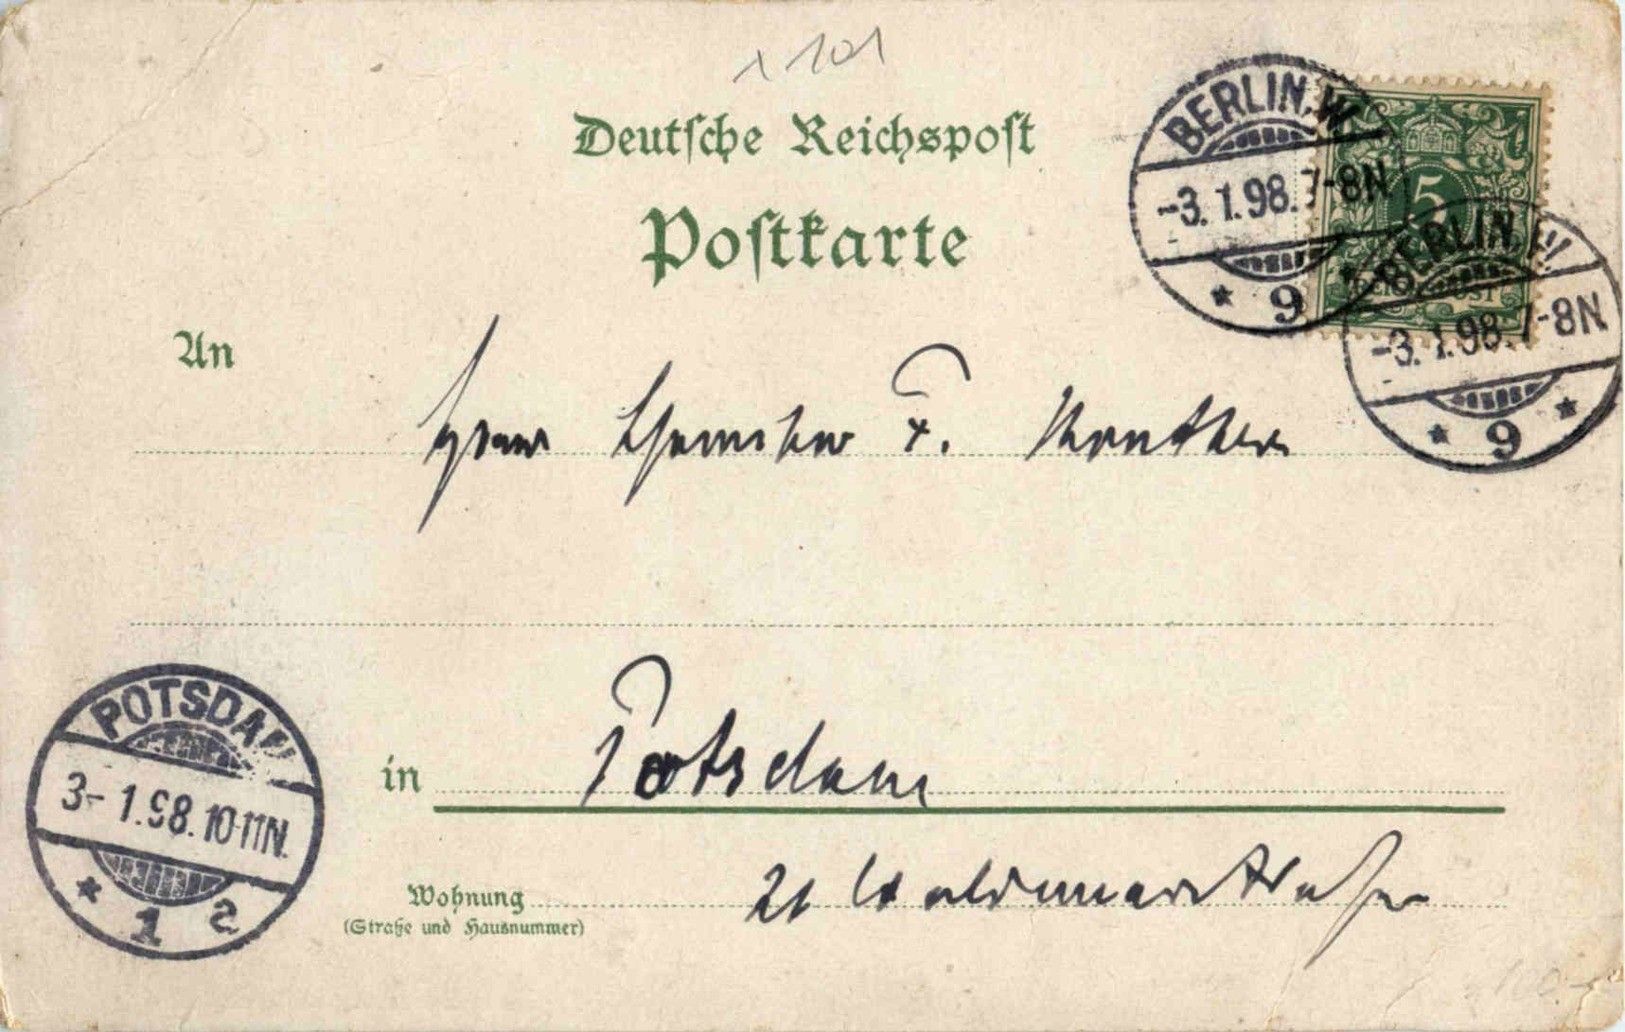 1101
Deutsche Reichspost
Postkarte
BERLIN, W.
-3.1.98.7-8N
* 9
5
REICHSPOST
BERLIN, W.
-3.1.98.7-8N
* 9 *
An
Herrn Chemiker F.
in Potsdam
POTSDAM
3-1.98.10-11N.
* 1 a
Wohnung 21 Waldemarstraße
(Straße und Hausnummer)
100.-